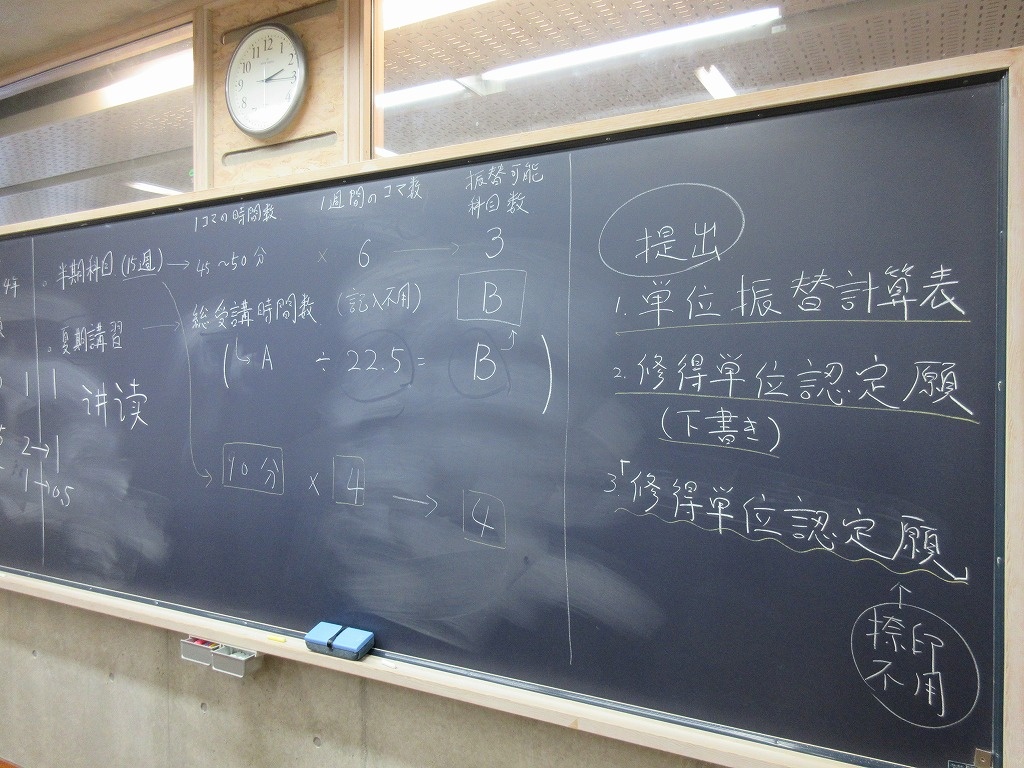 12 1 2 3 8 9 10 11
1コマの時間数 1週間のコマ数 振替可能
科目数
半期科目(15週) → 45~50分 × 6 → 3
夏期講習 → 総受講時間数 (記入不用) B
(↳ A ÷ 22.5 = B)
讲读
1 1
2→1
1→0.5
90分 × 4 → 4
提出
1. 単位振替計算表
2. 修得単位認定願
(下書き)
3.「修得単位認定願」
↑
捺印
不用